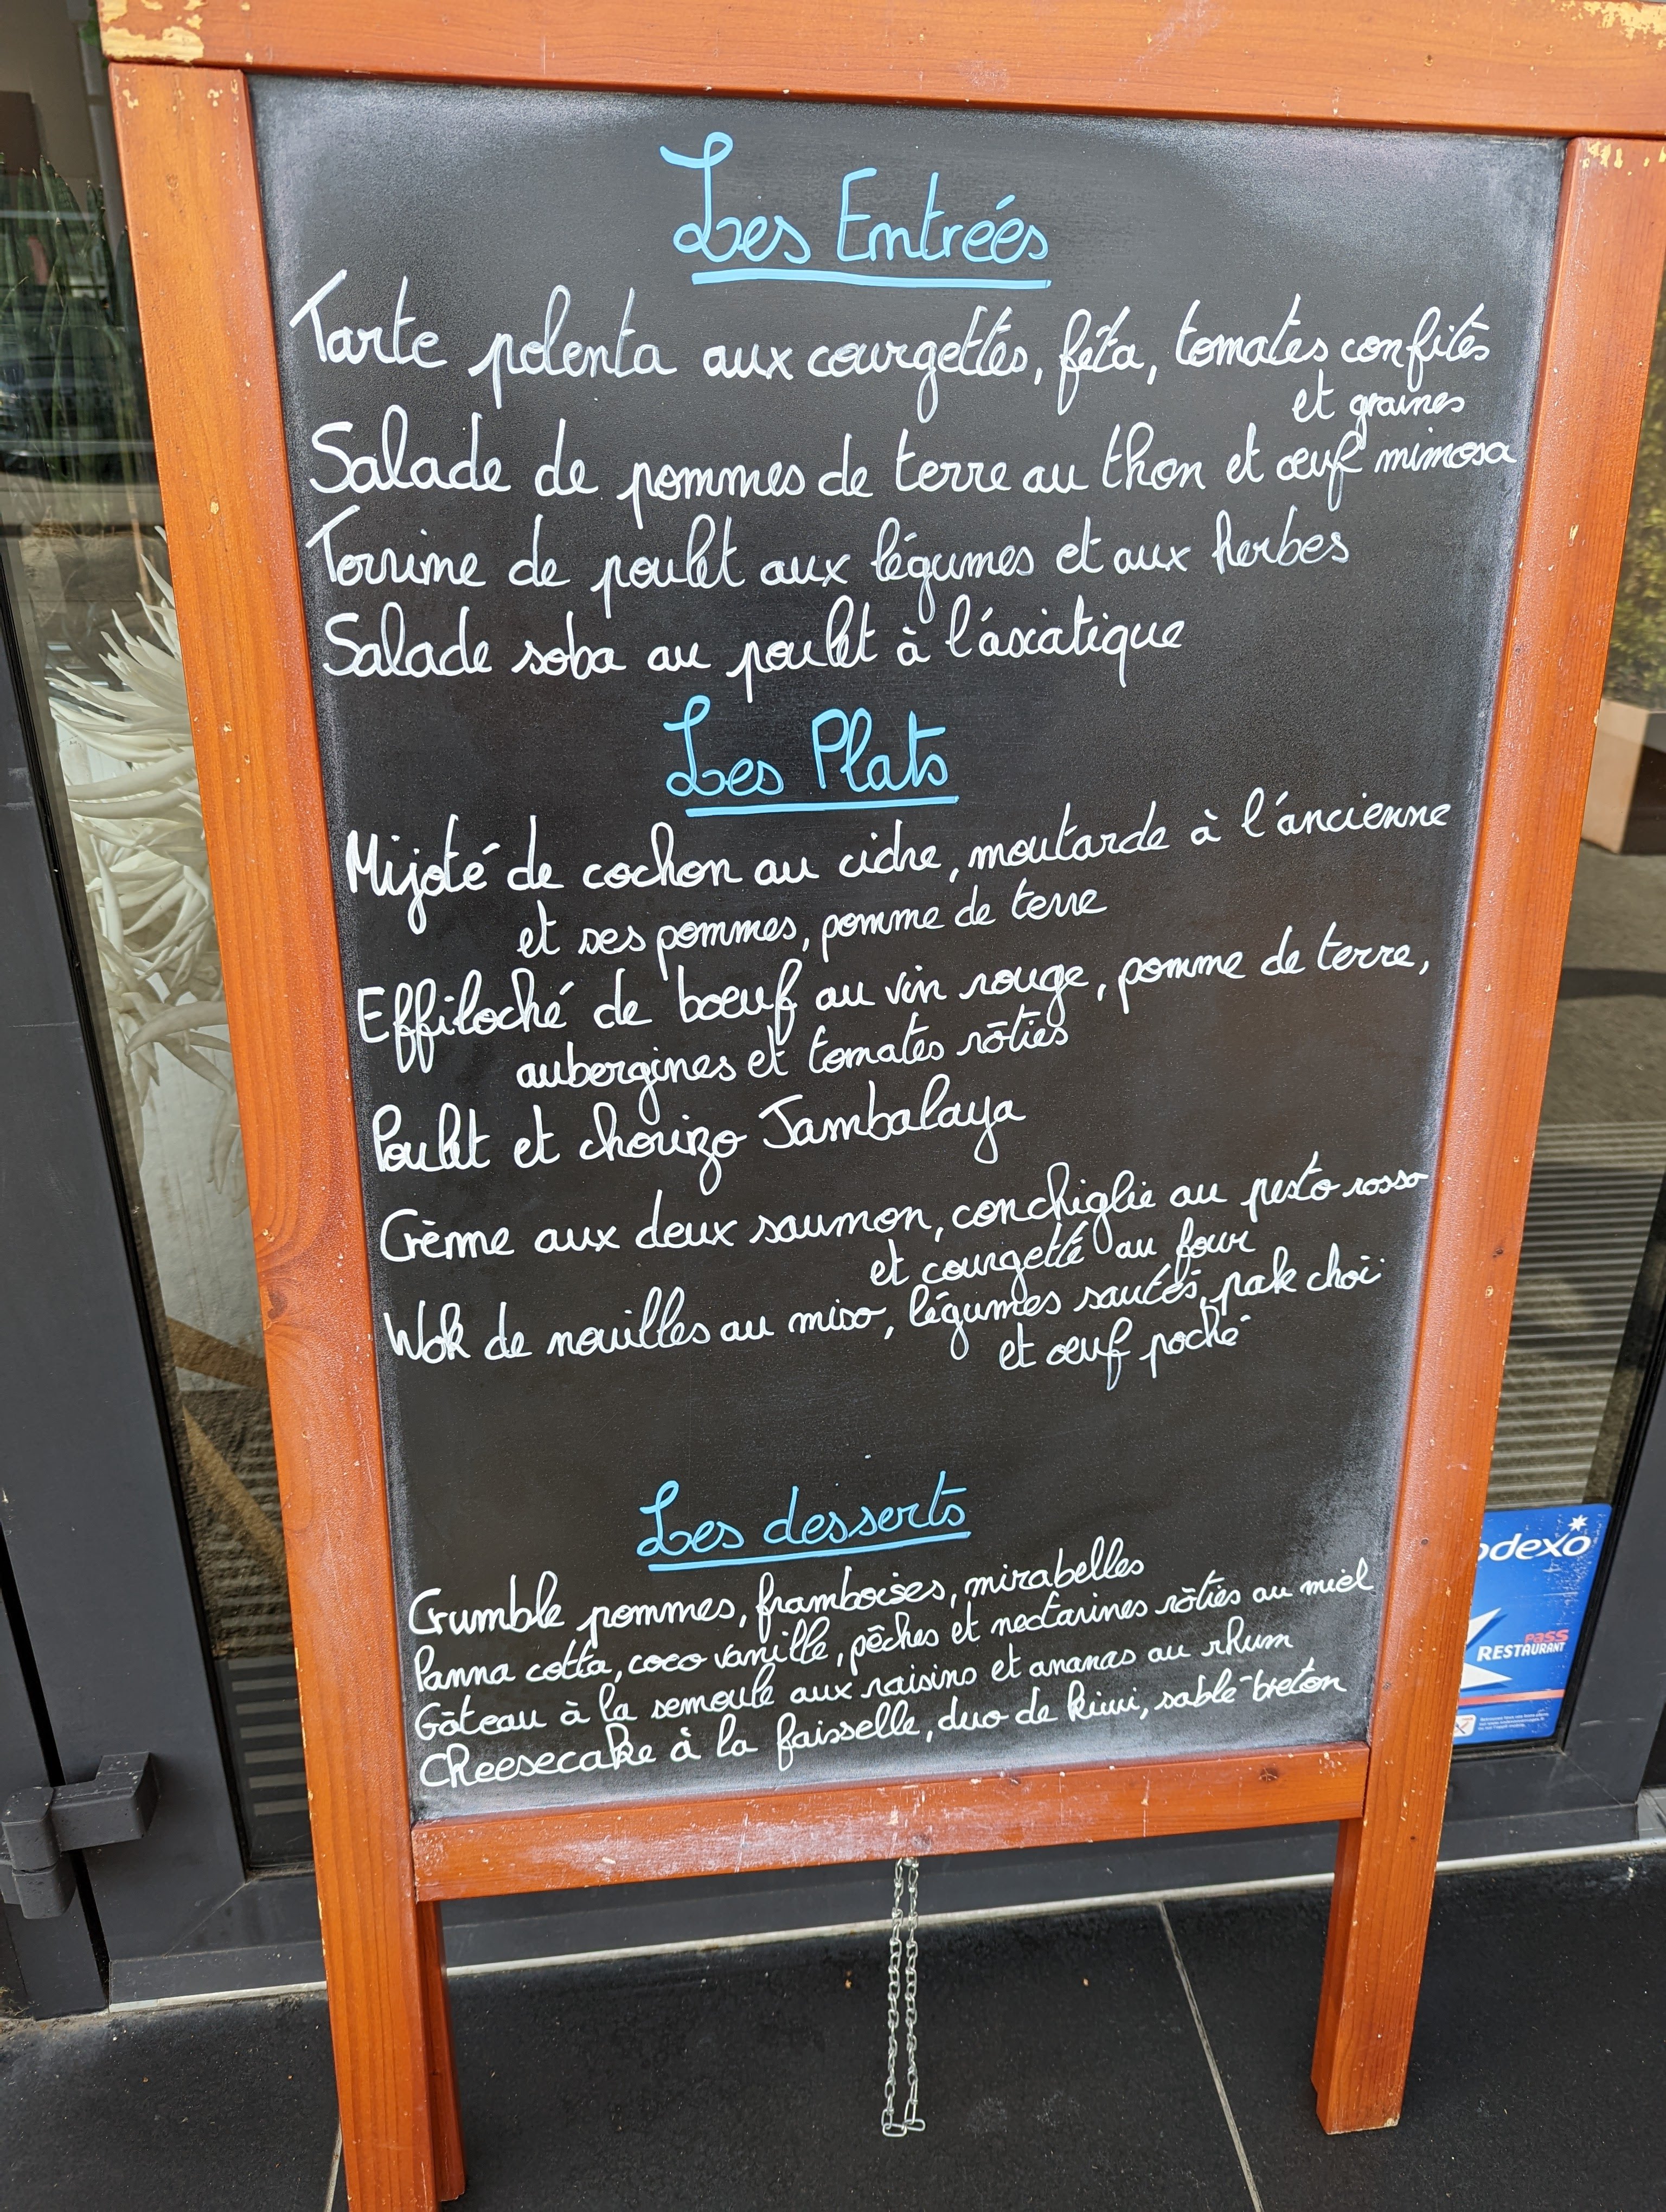 Les Entrées
Tarte polenta aux courgettes, féta, tomates confites
et graines
Salade de pommes de terre au thon et œuf mimosa
Terrine de poulet aux légumes et aux herbes
Salade soba au poulet à l'asiatique
Les Plats
Mijoté de cochon au cidre, moutarde à l'ancienne
et ses pommes, pomme de terre
Effiloché de bœuf au vin rouge, pomme de terre,
aubergines et tomates rôties
Poulet et chorizo Jambalaya
Crème aux deux saumon, conchiglie au pesto rosso
et courgette au four
Wok de nouilles au miso, légumes sautés, pak choï
et œuf poché
Les desserts
Crumble pommes, framboises, mirabelles
Panna cotta, coco vanille, pêches et nectarines rôties au miel
Gâteau à la semoule aux raisins et ananas au rhum
Cheesecake à la faisselle, duo de kiwi, sablé breton
odexo
PASS
RESTAURANT